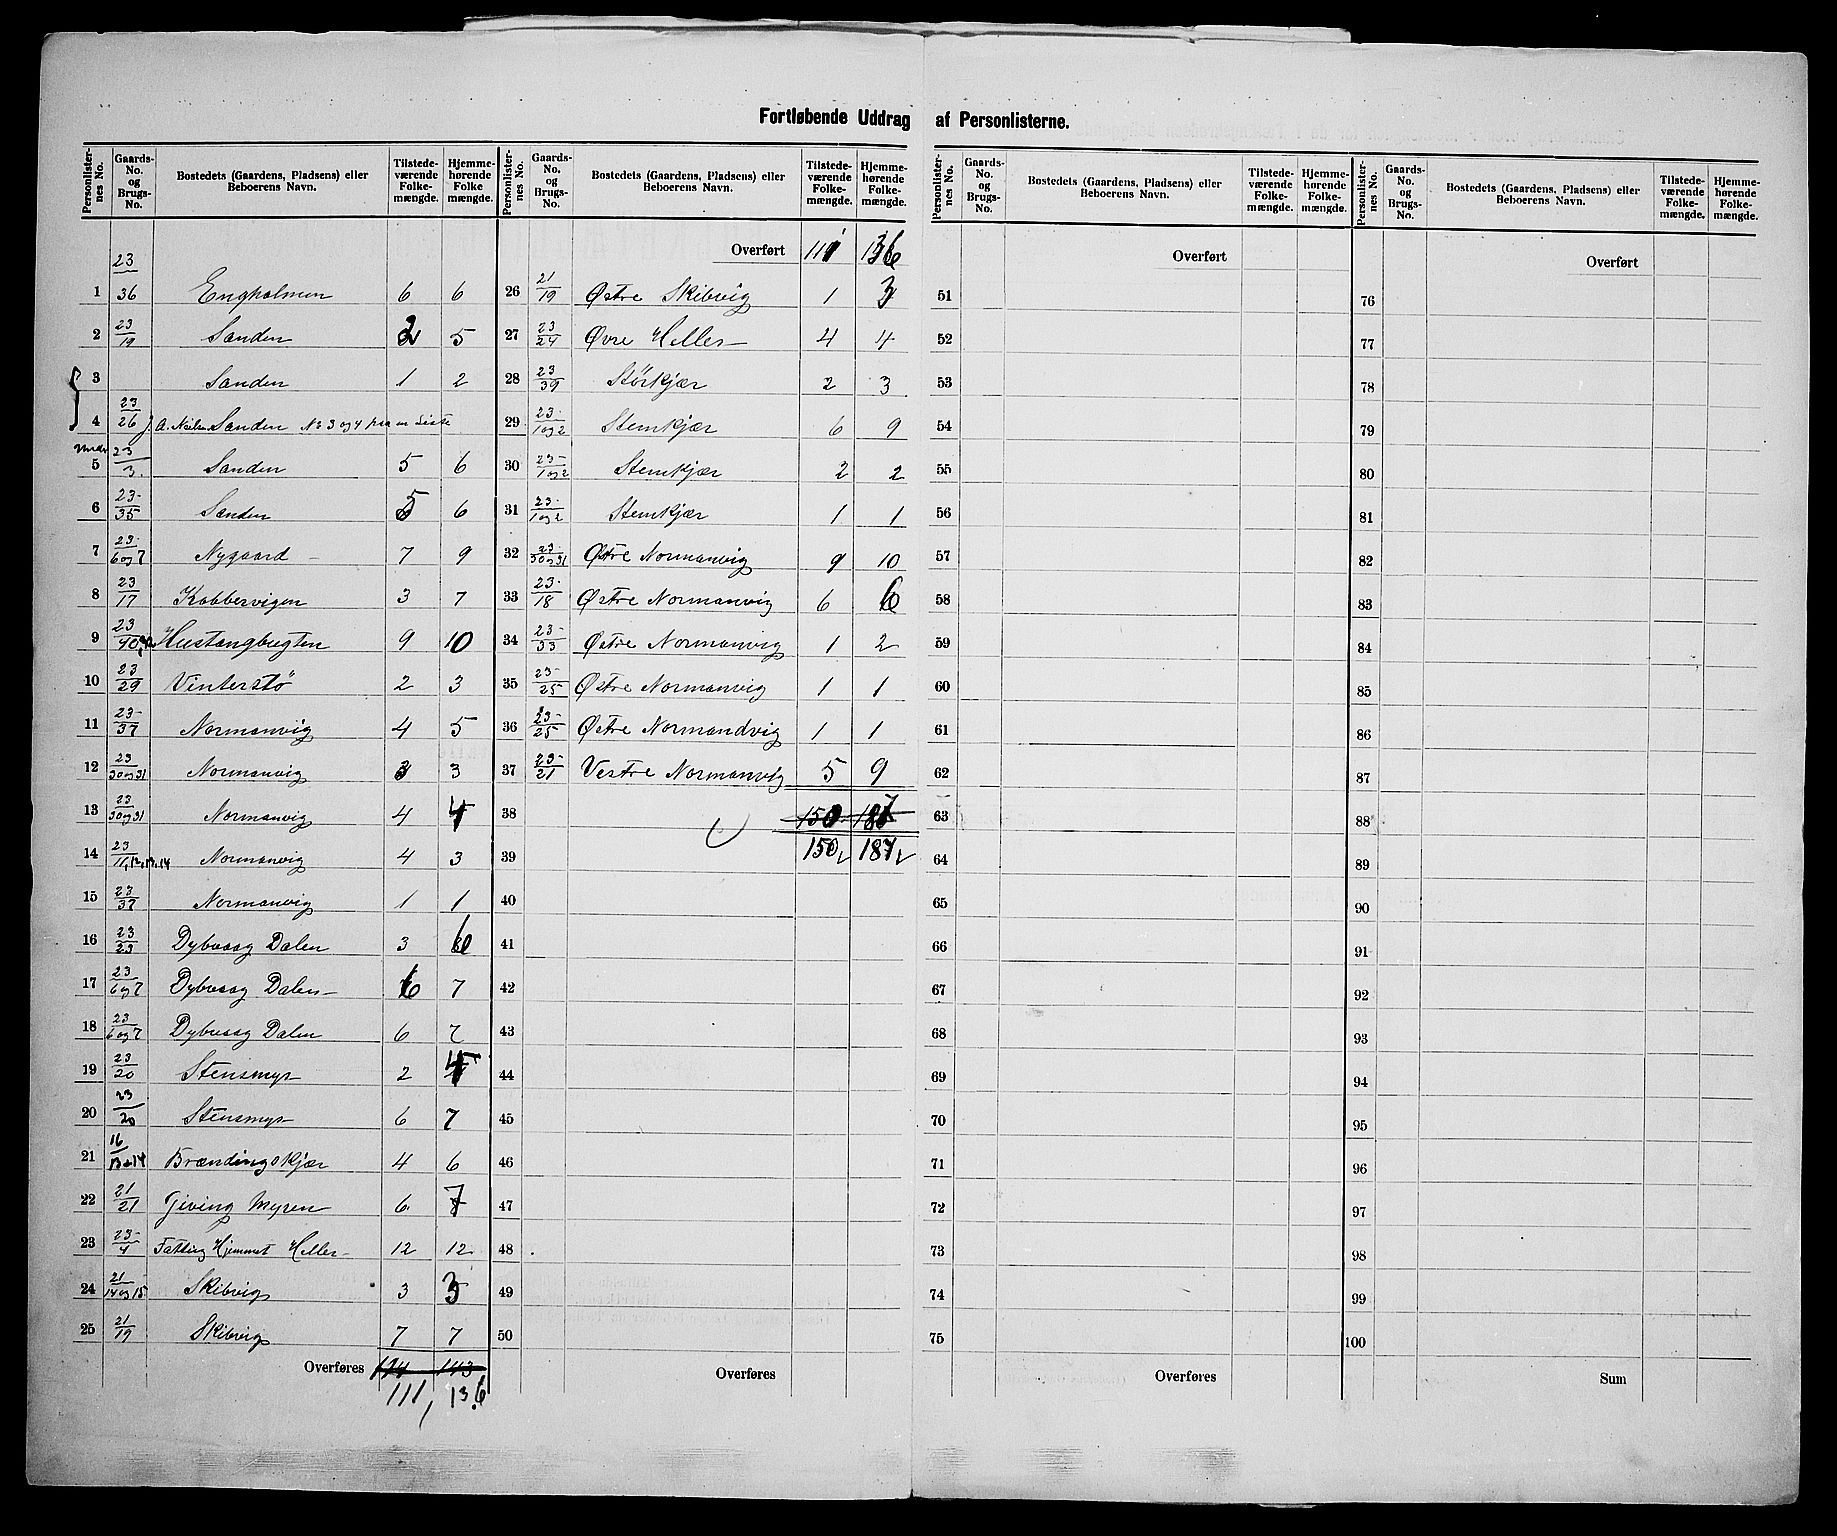 Fortløbende Uddrag af Personlisterne.
Personlister-nes No. | Gaards-No. og Brugs-No. | Bostedets (Gaardens, Pladsens) eller Beboerens Navn. | Tilstede-værende Folke-mængde. | Hjemme-hørende Folke mængde.
1 23/36 Engholmen 6 6
2 23/19 Sanden 2 5
3 Sanden 1 2
4 23/26 Sanden No 3 og 4 paa en Liste
5 23/3. Sanden 5 6
6 23/35 Sanden 5 6
7 23/6 og 7 Nygaard 7 9
8 23/17 Kobbervigen 3 7
9 23/40 Hustangbugten 9 10
10 23/29 Vinterstö 2 3
11 23/37 Normanvig 4 5
12 23/30 og 31 Normanvig 3 3
13 23/30 og 31 Normanvig 4 4
14 23/11, 12, 13, 14 Normanvig 4 3
15 23/37 Normanvig 1 1
16 23/23 Dybvaag Dalen 3 6
17 23/6 og 7 Dybvaag Dalen 6 7
18 23/6 og 7 Dybvaag Dalen 6 7
19 23/20 Stensmyr 2 4
20 23/20 Stensmyr 6 7
21 16/13 14 Brændingskjær 4 6
22 21/21 Giving Myren 6 7
23 23/4 Fattig Hjemmet Heller 12 12
24 21/14 og 15 Skibvig 3 3
25 21/19 Skibvig 7 7
Overføres 143
111, 136
Personlister-nes No. | Gaards-No. og Brugs-No. | Bostedets (Gaardens, Pladsens) eller Beboerens Navn. | Tilstede-værende Folke-mængde. | Hjemme-hørende Folke-mængde.
Overført 111 136
26 21/19 Østre Skibvig 1 3
27 23/24 Øvre Heller 4 4
28 23/39 Störkjær 2 3
29 23/1 og 2 Stemkjær 6 9
30 23/1 og 2 Stemkjær 2 2
31 23/1 og 2 Stemkjær 1 1
32 23/30 og 31 Østre Normanvig 9 10
33 23/18 Østre Normanvig 6 6
34 23/33 Østre Normanvig 1 2
35 23/25 Østre Normanvig 1 1
36 23/25 Østre Normandvig 1 1
37 23/21 Vestre Normanvig 5 9
38 150 187
39 150 187
40
41
42
43
44
45
46
47
48
49
50
Overføres
Personlister-nes No. | Gaards-No. og Brugs-No. | Bostedets (Gaardens, Pladsens) eller Beboerens Navn. | Tilstede-værende Folke-mængde. | Hjemme-hørende Folke-mængde.
Overført
51
52
53
54
55
56
57
58
59
60
61
62
63
64
65
66
67
68
69
70
71
72
73
74
75
Overføres
Personlister-nes No. | Gaards-No. og Brugs-No. | Bostedets (Gaardens, Pladsens) eller Beboerens Navn. | Tilstede-værende Folke-mængde. | Hjemme-hørende Folke-mængde.
Overført
76
77
78
79
80
81
82
83
84
85
86
87
88
89
90
91
92
93
94
95
96
97
98
99
100
Sum